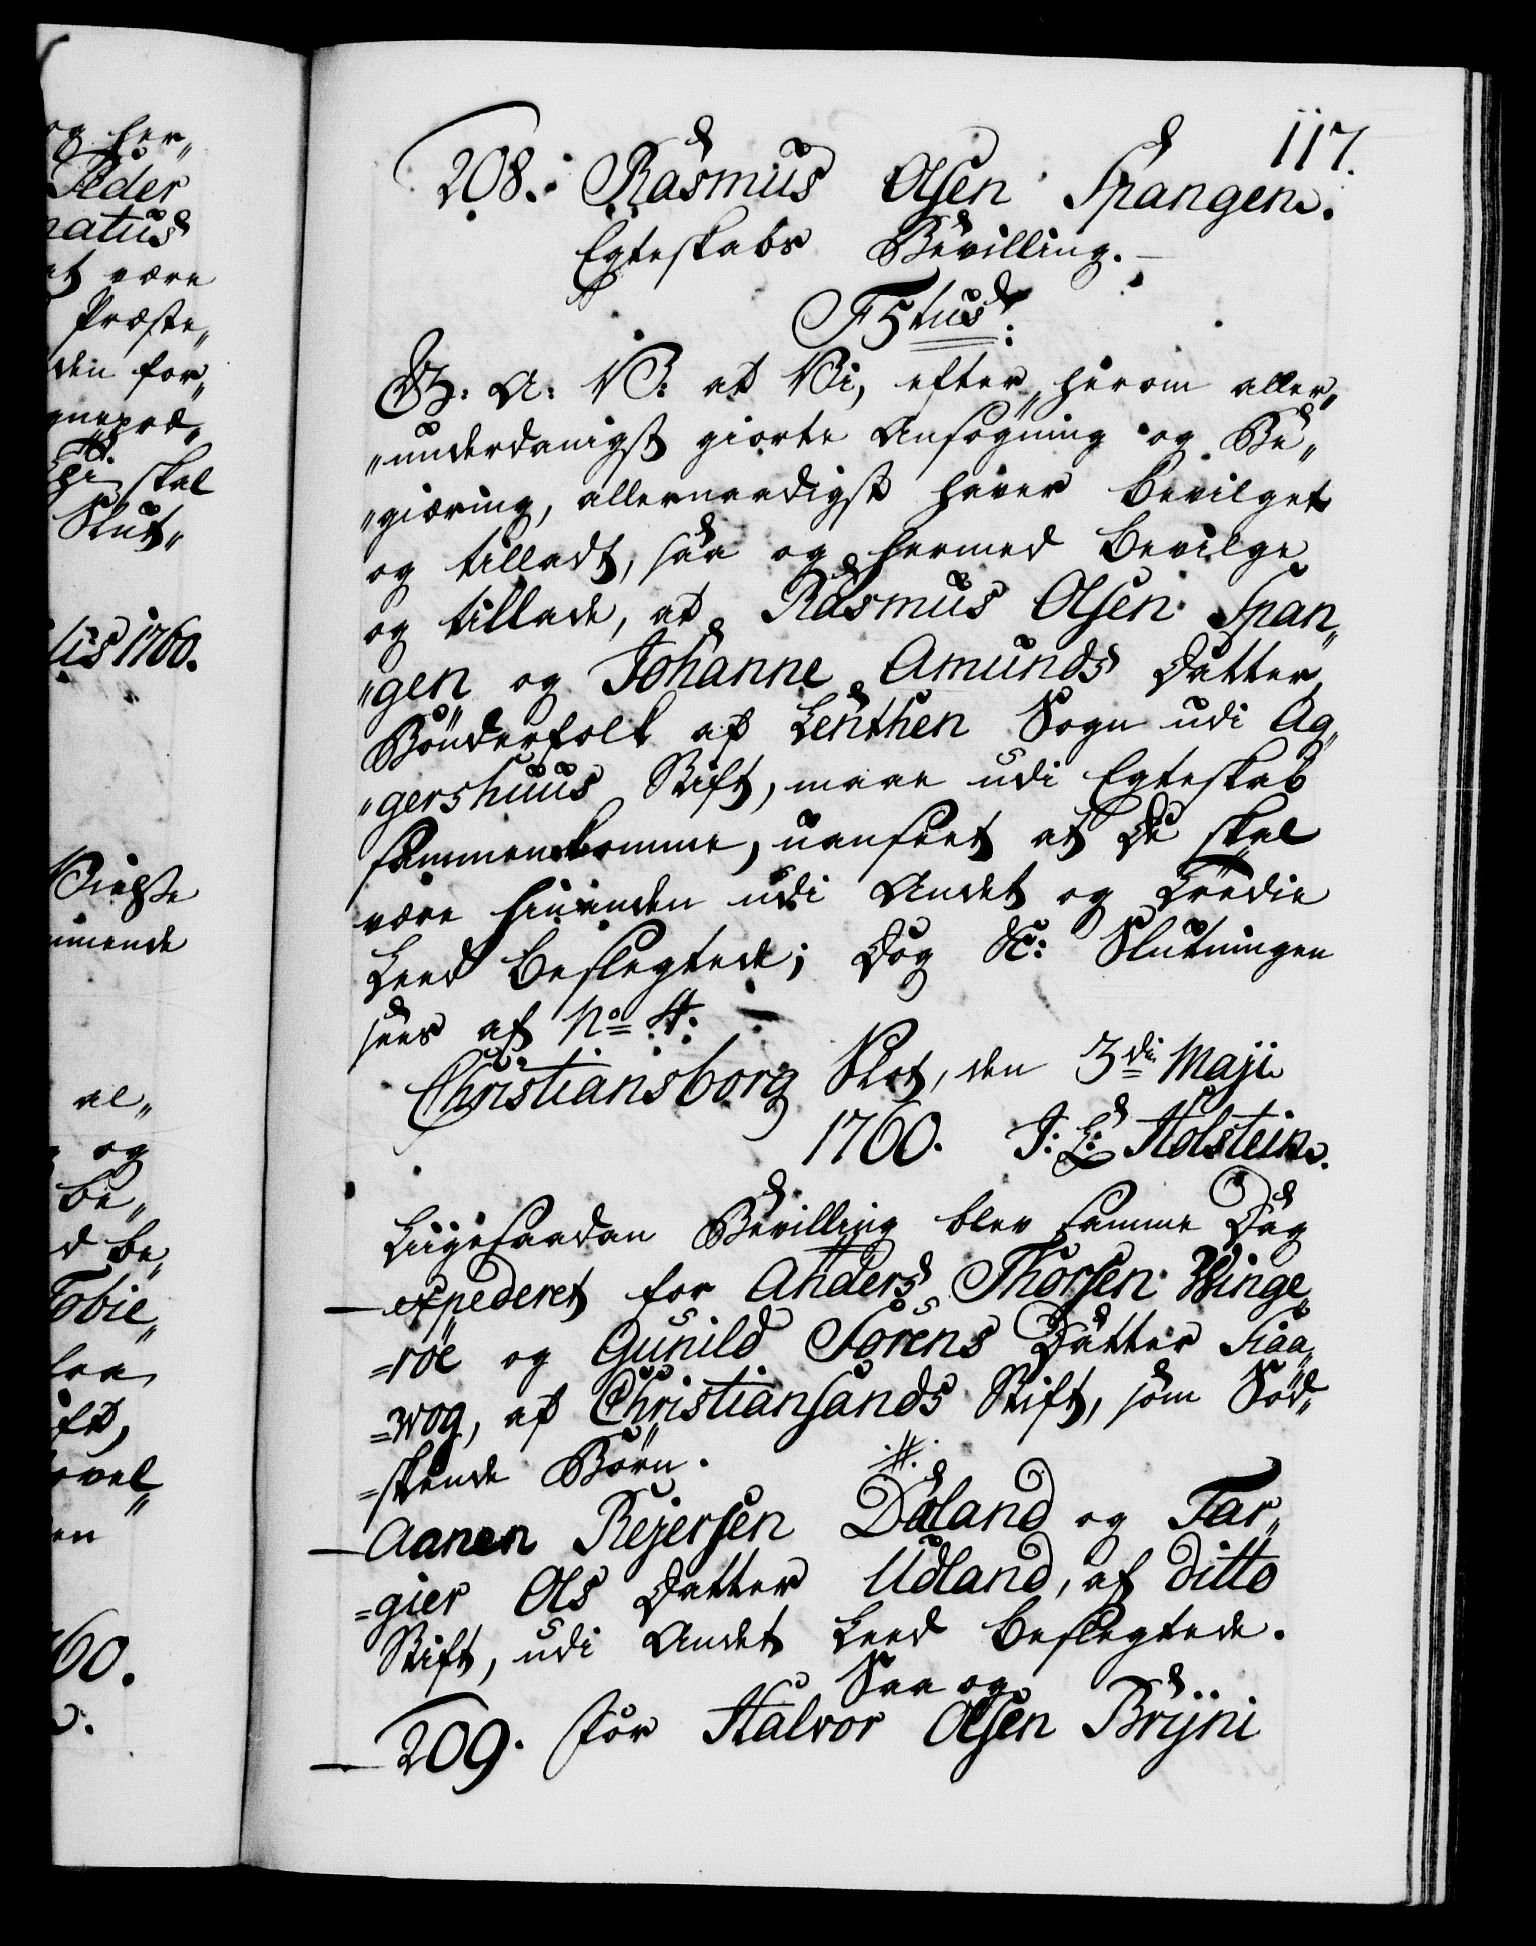 117.
208. Rasmus Olsen Spangen.
Egteskabs Bevilling.
F5tus.
G: A: V: at Vi, efter herom aller„
„underdanigst giorte Ansøgning og Be„
„giæring, allernaadigst haver bevilget
og tilladt, saa og hermed bevilge
og tillade, at Rasmus Olsen Span„
„gen og Johanne Amunds Datter
Bønderfolk af Lenthen Sogn udi Ag„
„gershuus Stift, maae udi Egteskab
sammenkomme, uanseet at De skal
være hinanden udi Andet og Tredie
Leed beslegtede; Dog &c: Slutningen
sees af No 4.
Christiansborg Slot, den 3die Maji
1760. J: L: Holstein.
Liigesaadan Bevilling blev samme Dag
expederet for Anders Thorsen Winge„
=röe og Gunild Sørens Datter Siaa„
=wog, af Christiansands Stift, som Sød„
=skende Børn.
Aanen Rejersen Daland og Tar„
=gier Ols Datter Udland, af ditto
Stift, udi Andet Leed beslegtede.
Saa og
209. for Halvor Olsen Brijni
og her„
Peder
natus
at være
Præste„
den for„
skal
Slut„
1760.
al„
og
be„
d be„
Tobie„
60.